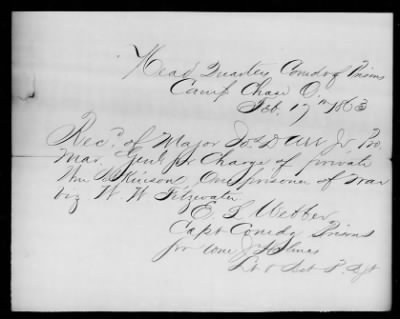 Head Quarters Comdg Prisons
Camp Chase O.
Feb. 17th 1863
Rec'd of Major Jos D Alt Jr Pro.
Mar. Genl pr Charge of private
Wm Atkinson, One prisoner of War
viz W. W Fitzwater
E. L Webber
Capt Comdg Prisons
for Wm J Holmes
Lt &